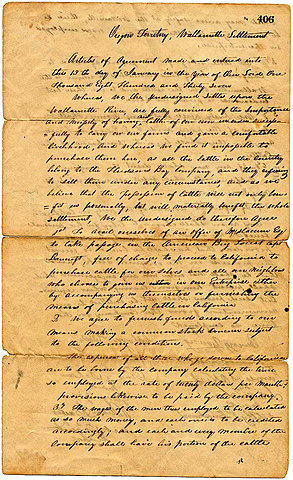 406
Oregon Territory, Wallamette Settlement
Articles of Agreement made and entered into
this 13th day of January in the Year of Our Lord One
Thousand Eight Hundred and Thirty Seven
Whereas, We the undersigned Settlers upon the
Wallamette River are fully convinced of the importance
and necessity of having Cattle of our own in order
fully to carry on our farms and gain a comfortable
livelihood, and Whereas we find it impossible to
purchase them here, as all the Cattle in the Country
belong to the Hudsons Bay Company, and they refusing
to sell them under any circumstances, and as we
believe that the possession of Cattle will not only
us personally, but will materially benefit the whole
settlement, We the undersigned do therefore agree
1st To avail ourselves of an offer of Slacum Esq
to take passage in the American Brig
free of charge to proceed to California to
purchase cattle for our selves and all our Neighbors
who choose to join us in our Enterprise either
by accompanying us themselves or furnishing the
means of purchasing Cattle in California
2 We agree to furnish funds according to our
means making a common stock concern subject
to the following conditions.
The expenses of all those who go down to California
are to be borne by the company calculating the time
so employed at the rate of twenty dollars per Month;
provisions likewise to be paid by the company,
3d The wages of the men thus employed to be calculated
as so much money, and each one is to be credited
accordingly; and each and every member of the
Company shall have his portion of the cattle